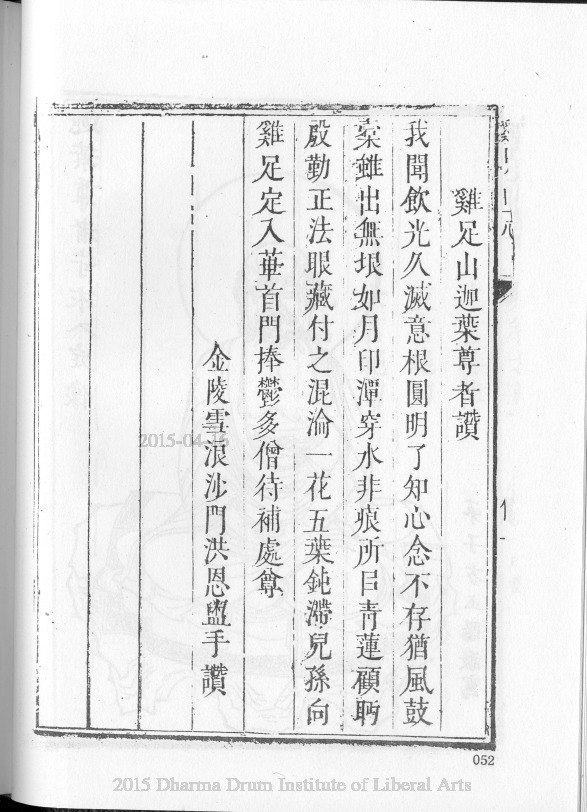 雞足山迦葉尊者讚
我聞飲光久滅意根圓明了知心念不存猶風鼓
橐雖出無垠如月印潭穿水非痕所㠯青蓮顧眄
殷勤正法眼藏付之混淪一花五葉鈍滯兒孫向
雞足定入華首門捧鬱多僧待補處尊
金陵雪浪沙門洪恩盥手讚
052
2015-04-16
2015 Dharma Drum Institute of Liberal Arts